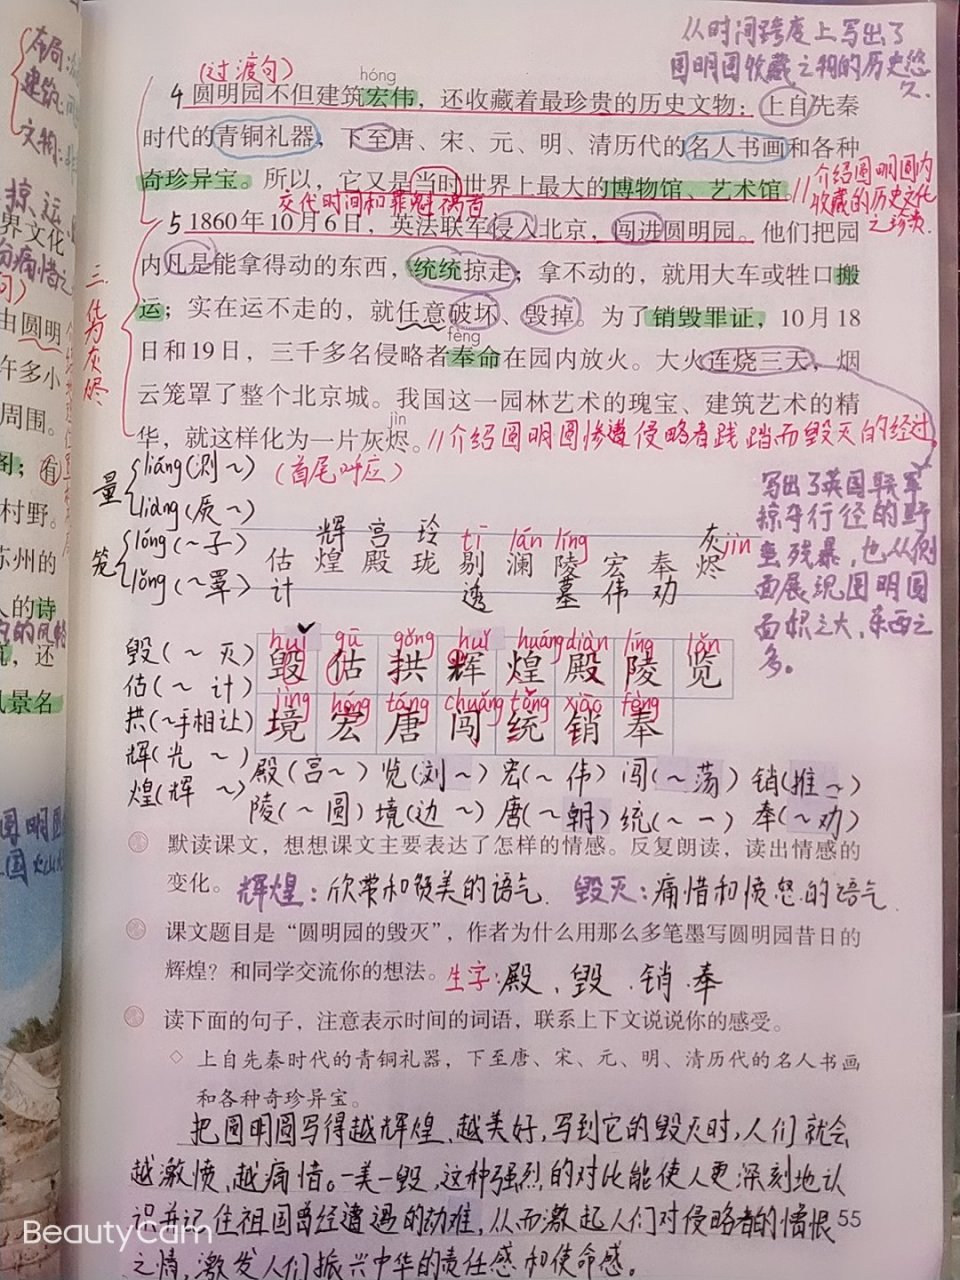 从时间跨度上写出了
圆明园收藏文物的历史悠
久.
(过渡句)
hóng
4 圆明园不但建筑宏伟，还收藏着最珍贵的历史文物：上自先秦
时代的青铜礼器，下至唐、宋、元、明、清历代的名人书画和各种
奇珍异宝。所以，它又是当时世界上最大的博物馆、艺术馆。
//介绍圆明园内
收藏的历史文化
之珍贵.
交代时间和罪魁祸首
5 1860年10月6日，英法联军侵入北京，闯进圆明园。他们把园
内凡是能拿得动的东西，统统掠走；拿不动的，就用大车或牲口搬
运；实在运不走的，就任意破坏、毁掉。为了销毁罪证，10月18
fèng
日和19日，三千多名侵略者奉命在园内放火。大火连烧三天，烟
云笼罩了整个北京城。我国这一园林艺术的瑰宝、建筑艺术的精
jìn
华，就这样化为一片灰烬。
//介绍圆明园惨遭侵略者践踏而毁灭的经过
三.化为灰烬
(首尾呼应)
写出了英国联军
掠夺行径的野
蛮残暴，也从侧
面展现圆明园
面积之大，东西之
多。
量 liáng(测~)
liàng(质~)
笼 lóng(~子)
lǒng(~罩)
辉 宫 玲 tī lán líng 灰 jìn
估 煌 殿 珑 剔 澜 陵 宏 奉 烬
计 透 墓 伟 劝
huǐ gū gǒng huī huáng diàn líng lǎn
毁 估 拱 辉 煌 殿 陵 览
jìng hóng táng chuǎng tǒng xiāo fèng
境 宏 唐 闯 统 销 奉
毁(~灭)
估(~计)
拱(~手相让)
辉(光~)
煌(辉~)
殿(宫~) 览(浏~) 宏(~伟) 闯(~荡) 销(推~)
陵(~园) 境(边~) 唐(~朝) 统(~一) 奉(~劝)
默读课文，想想课文主要表达了怎样的情感。反复朗读，读出情感的
变化。 辉煌：欣赏和赞美的语气. 毁灭：痛惜和愤怒的语气.
课文题目是“圆明园的毁灭”，作者为什么用那么多笔墨写圆明园昔日的
辉煌？和同学交流你的想法。 生字：殿、毁、销、奉
读下面的句子，注意表示时间的词语，联系上下文说说你的感受。
◇ 上自先秦时代的青铜礼器，下至唐、宋、元、明、清历代的名人书画
和各种奇珍异宝。
把圆明园写得越辉煌、越美好，写到它的毁灭时，人们就会
越激愤、越痛惜。一美一毁，这种强烈的对比能使人更深刻地认
识并记住祖国曾经遭遇的劫难，从而激起人们对侵略者的憎恨
之情，激发人们振兴中华的责任感和使命感。
55
布局:
建筑:
文物:
掠、运、
界文化
由圆明
午多小
周围。
图；有
村野。
苏州的
人的诗
，还
风景名
圆明园
BeautyCam